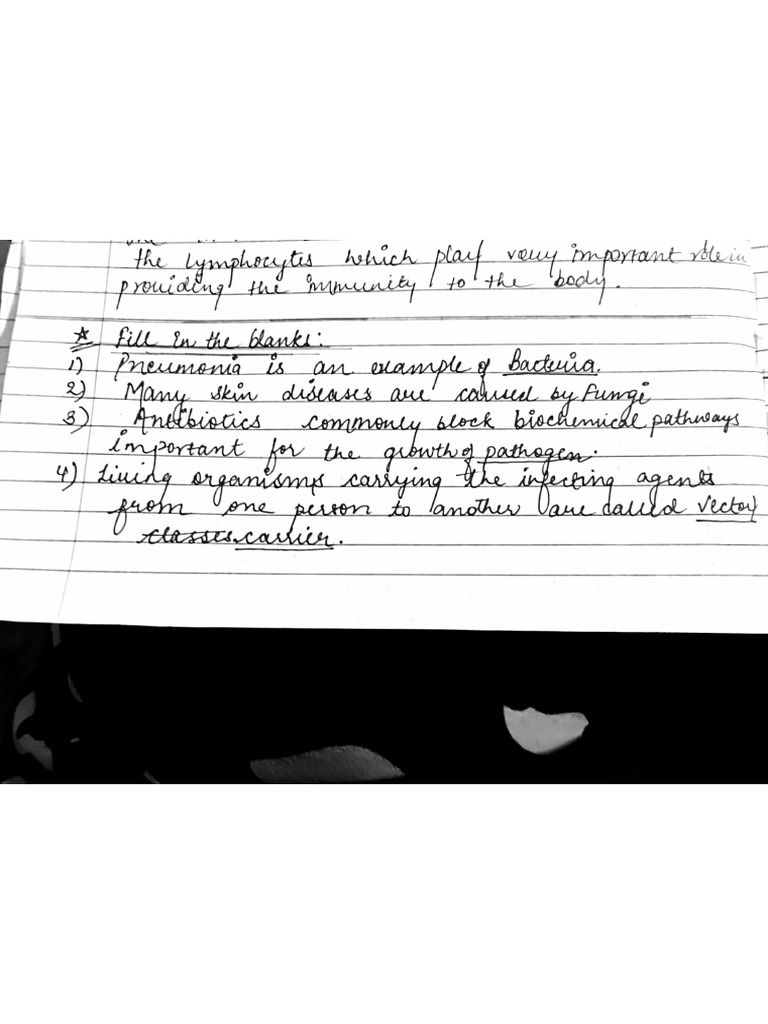 the lymphocytis which play very important role in
providing the immunity to the body.
* fill in the blanks:
1) Pneumonia is an example of Bacteria.
2) Many skin diseases are caused by Fungi
3) Antibiotics commonly block biochemical pathways
important for the growth of pathogen.
4) Living organisms carrying the infecting agents
from one person to another are called vector/
classes carrier.